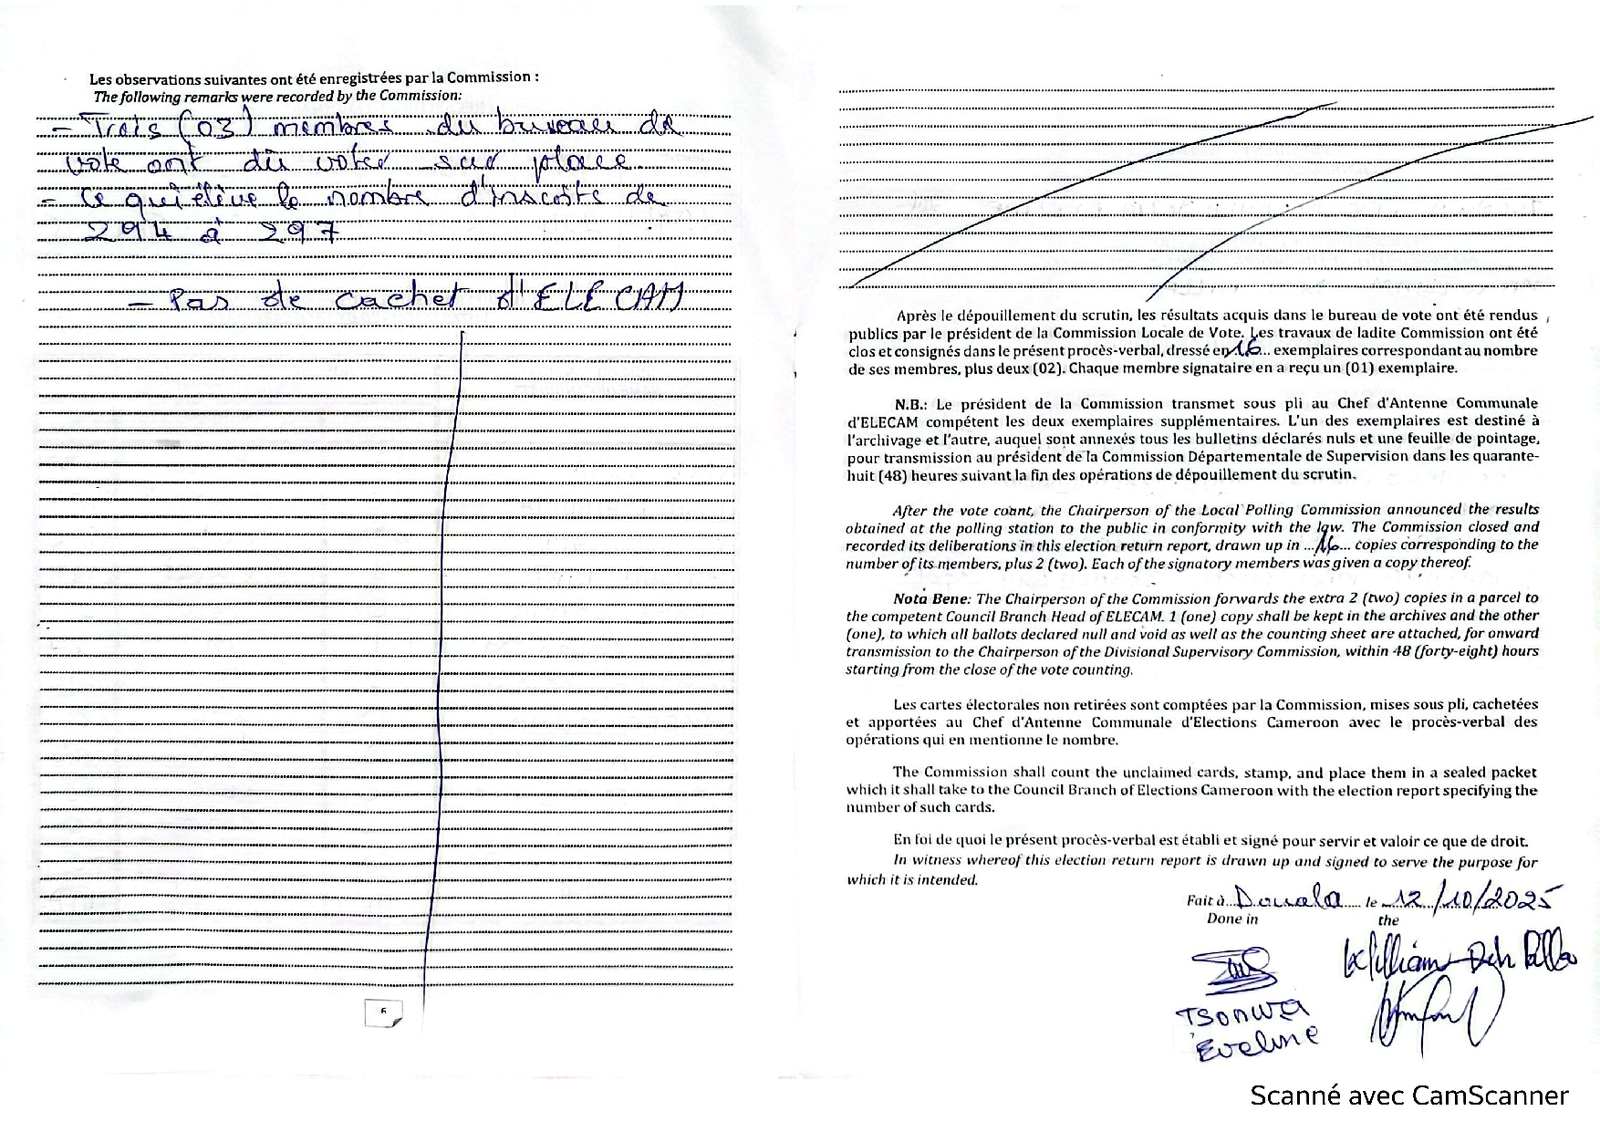 Les observations suivantes ont été enregistrées par la Commission :
The following remarks were recorded by the Commission:
- Trois (03) membres du bureau de
vote ont dû voter sur place
- ce qui élève le nombre d'inscrits de
294 à 297
- Pas de cachet d'ELECAM
6
Après le dépouillement du scrutin, les résultats acquis dans le bureau de vote ont été rendus
publics par le président de la Commission Locale de Vote. Les travaux de ladite Commission ont été
clos et consignés dans le présent procès-verbal, dressé en 16... exemplaires correspondant au nombre
de ses membres, plus deux (02). Chaque membre signataire en a reçu un (01) exemplaire.
N.B.: Le président de la Commission transmet sous pli au Chef d'Antenne Communale
d'ELECAM compétent les deux exemplaires supplémentaires. L'un des exemplaires est destiné à
l'archivage et l'autre, auquel sont annexés tous les bulletins déclarés nuls et une feuille de pointage,
pour transmission au président de la Commission Départementale de Supervision dans les quarante-
huit (48) heures suivant la fin des opérations de dépouillement du scrutin.
After the vote count, the Chairperson of the Local Polling Commission announced the results
obtained at the polling station to the public in conformity with the law. The Commission closed and
recorded its deliberations in this election return report, drawn up in ...16... copies corresponding to the
number of its members, plus 2 (two). Each of the signatory members was given a copy thereof.
Nota Bene: The Chairperson of the Commission forwards the extra 2 (two) copies in a parcel to
the competent Council Branch Head of ELECAM. 1 (one) copy shall be kept in the archives and the other
(one), to which all ballots declared null and void as well as the counting sheet are attached, for onward
transmission to the Chairperson of the Divisional Supervisory Commission, within 48 (forty-eight) hours
starting from the close of the vote counting.
Les cartes électorales non retirées sont comptées par la Commission, mises sous pli, cachetées
et apportées au Chef d'Antenne Communale d'Elections Cameroon avec le procès-verbal des
opérations qui en mentionne le nombre.
The Commission shall count the unclaimed cards, stamp, and place them in a sealed packet
which it shall take to the Council Branch of Elections Cameroon with the election report specifying the
number of such cards.
En foi de quoi le présent procès-verbal est établi et signé pour servir et valoir ce que de droit.
In witness whereof this election return report is drawn up and signed to serve the purpose for
which it is intended.
Fait à Douala le 12/10/2025
Done in the
William
TSONWA
Eveline
Scanné avec CamScanner